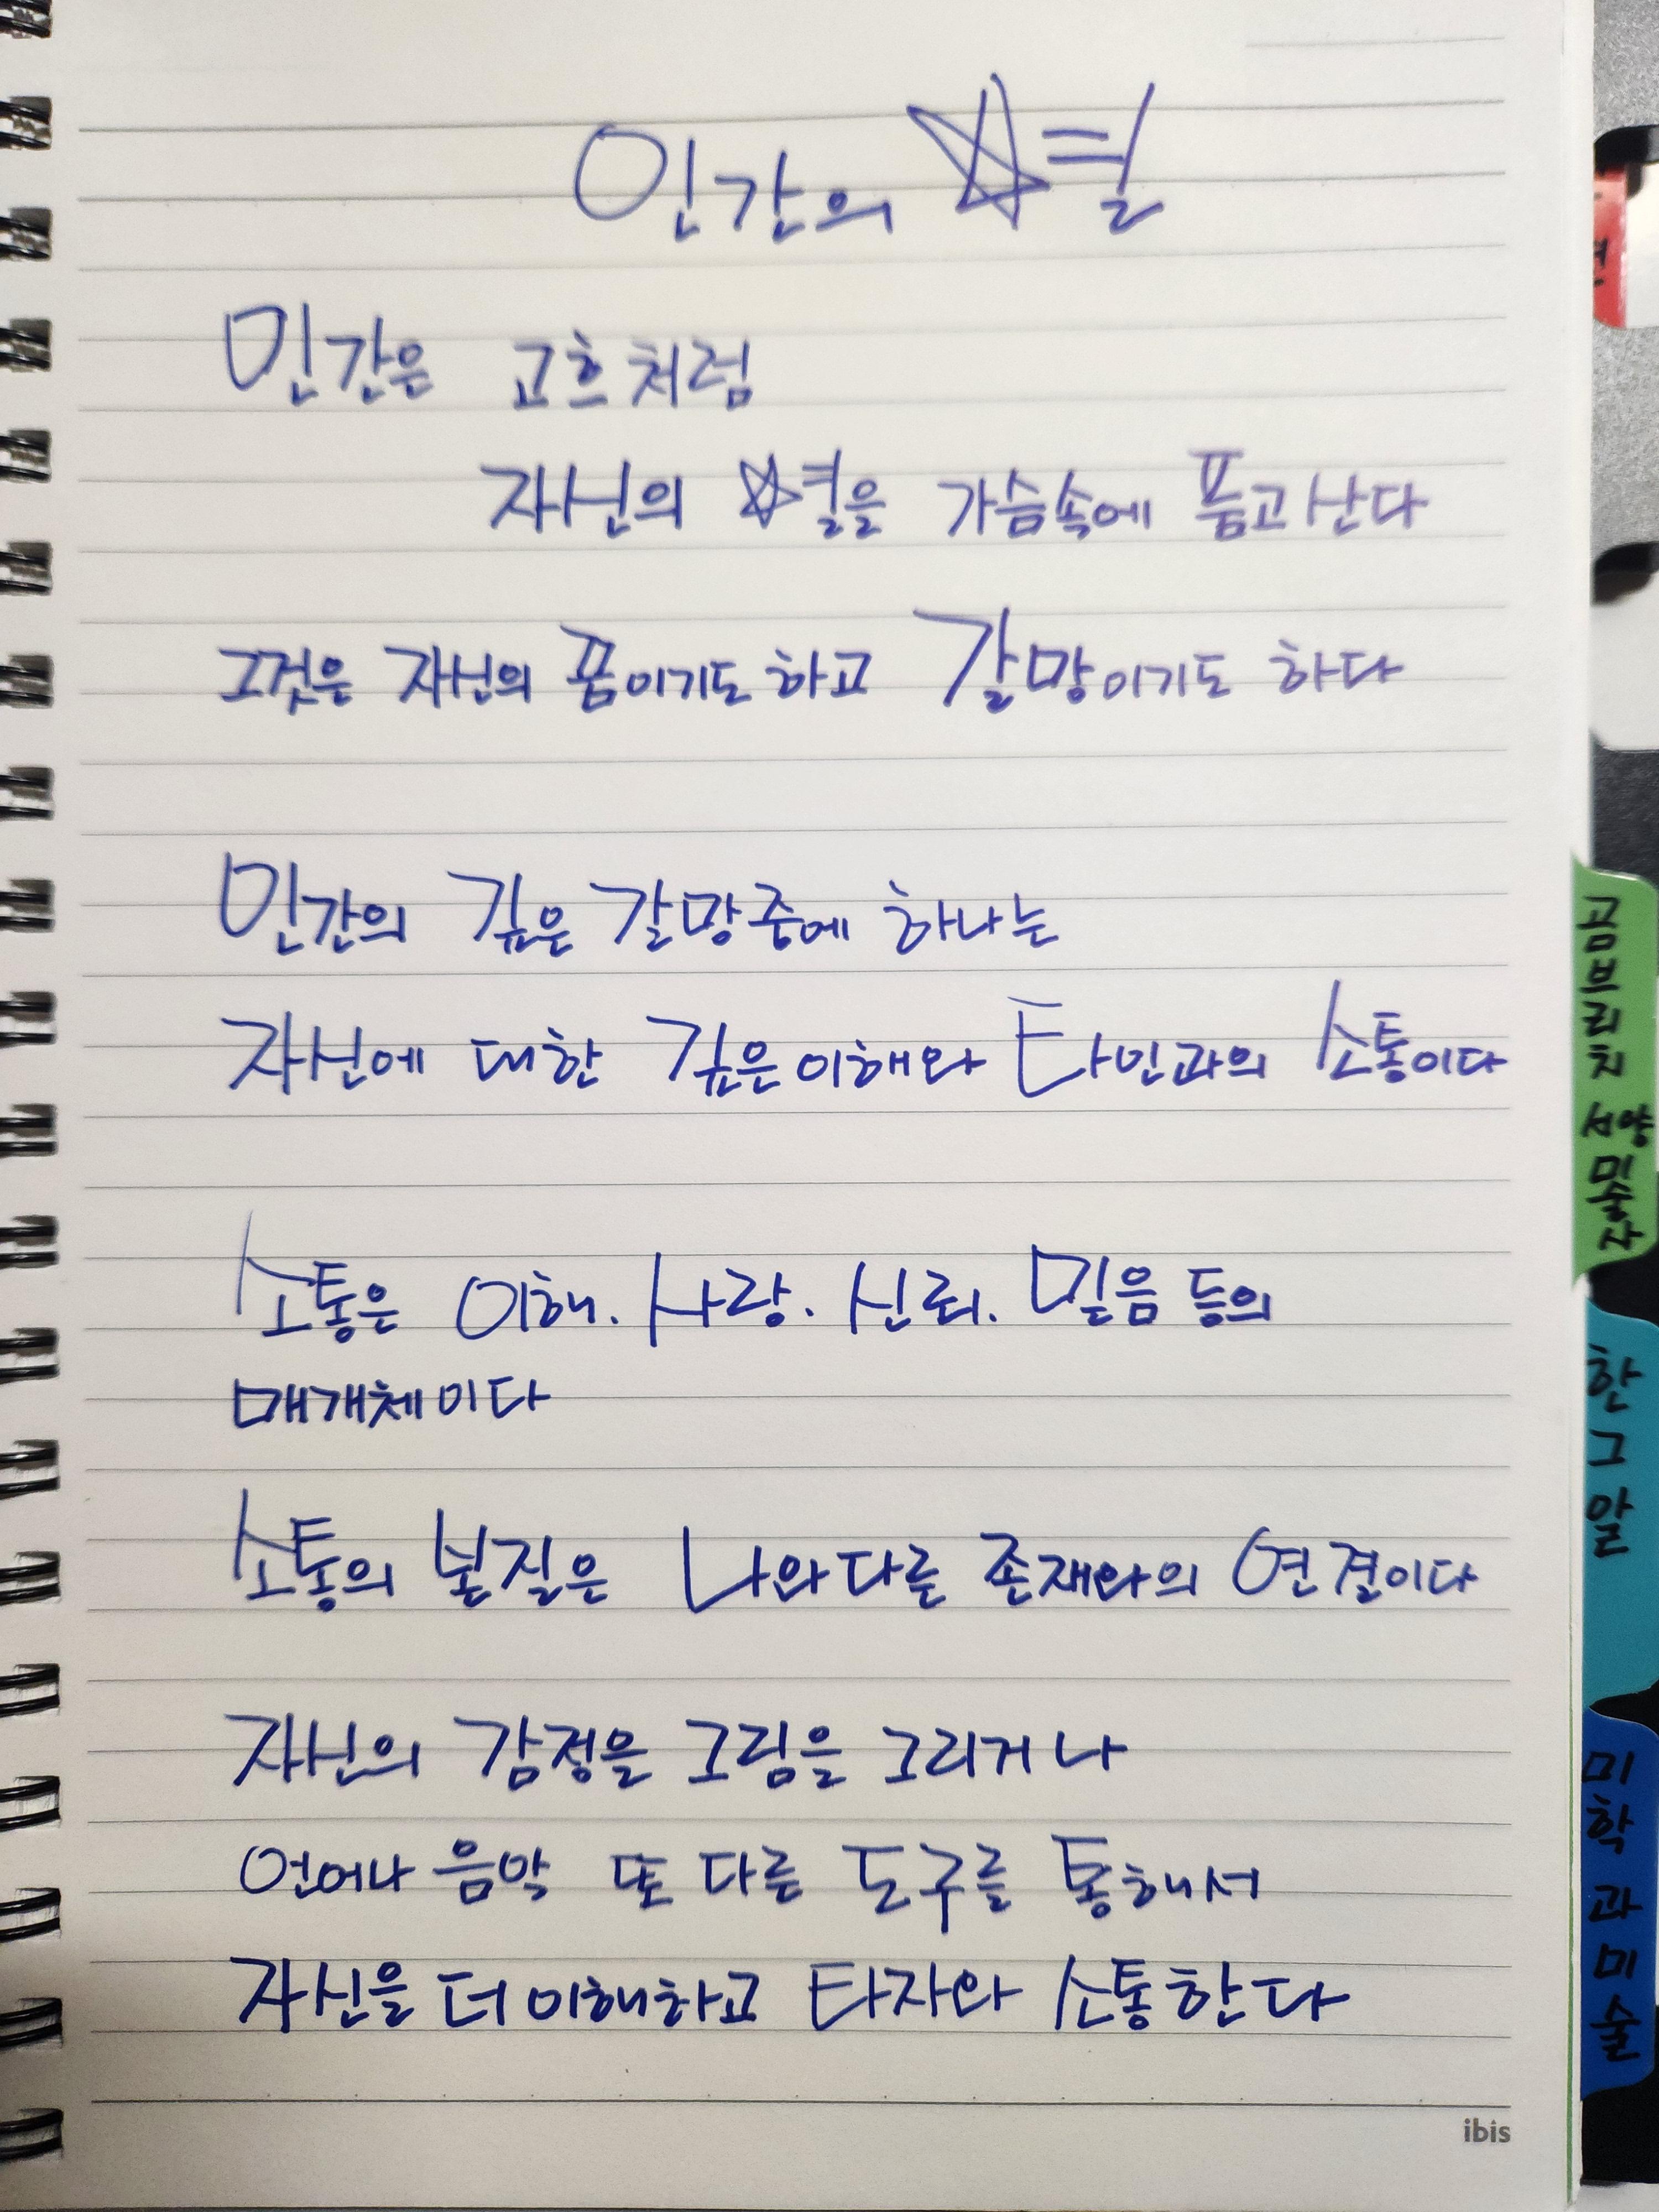 인간의 ☆별
인간은 고흐처럼
자신의 ☆별을 가슴속에 품고 산다
그것은 자신의 꿈이기도 하고 갈망이기도 하다
인간의 깊은 갈망중에 하나는
자신에 대한 깊은 이해와 타인과의 소통이다
소통은 이해. 사랑. 신뢰. 믿음 등의
매개체이다
소통의 본질은 나와 다른 존재와의 연결이다
자신의 감정을 그림을 그리거나
언어나 음악 또 다른 도구를 통해서
자신을 더 이해하고 타자와 소통한다
ibis
곰브리치 서양미술사
한그알
미학과 미술